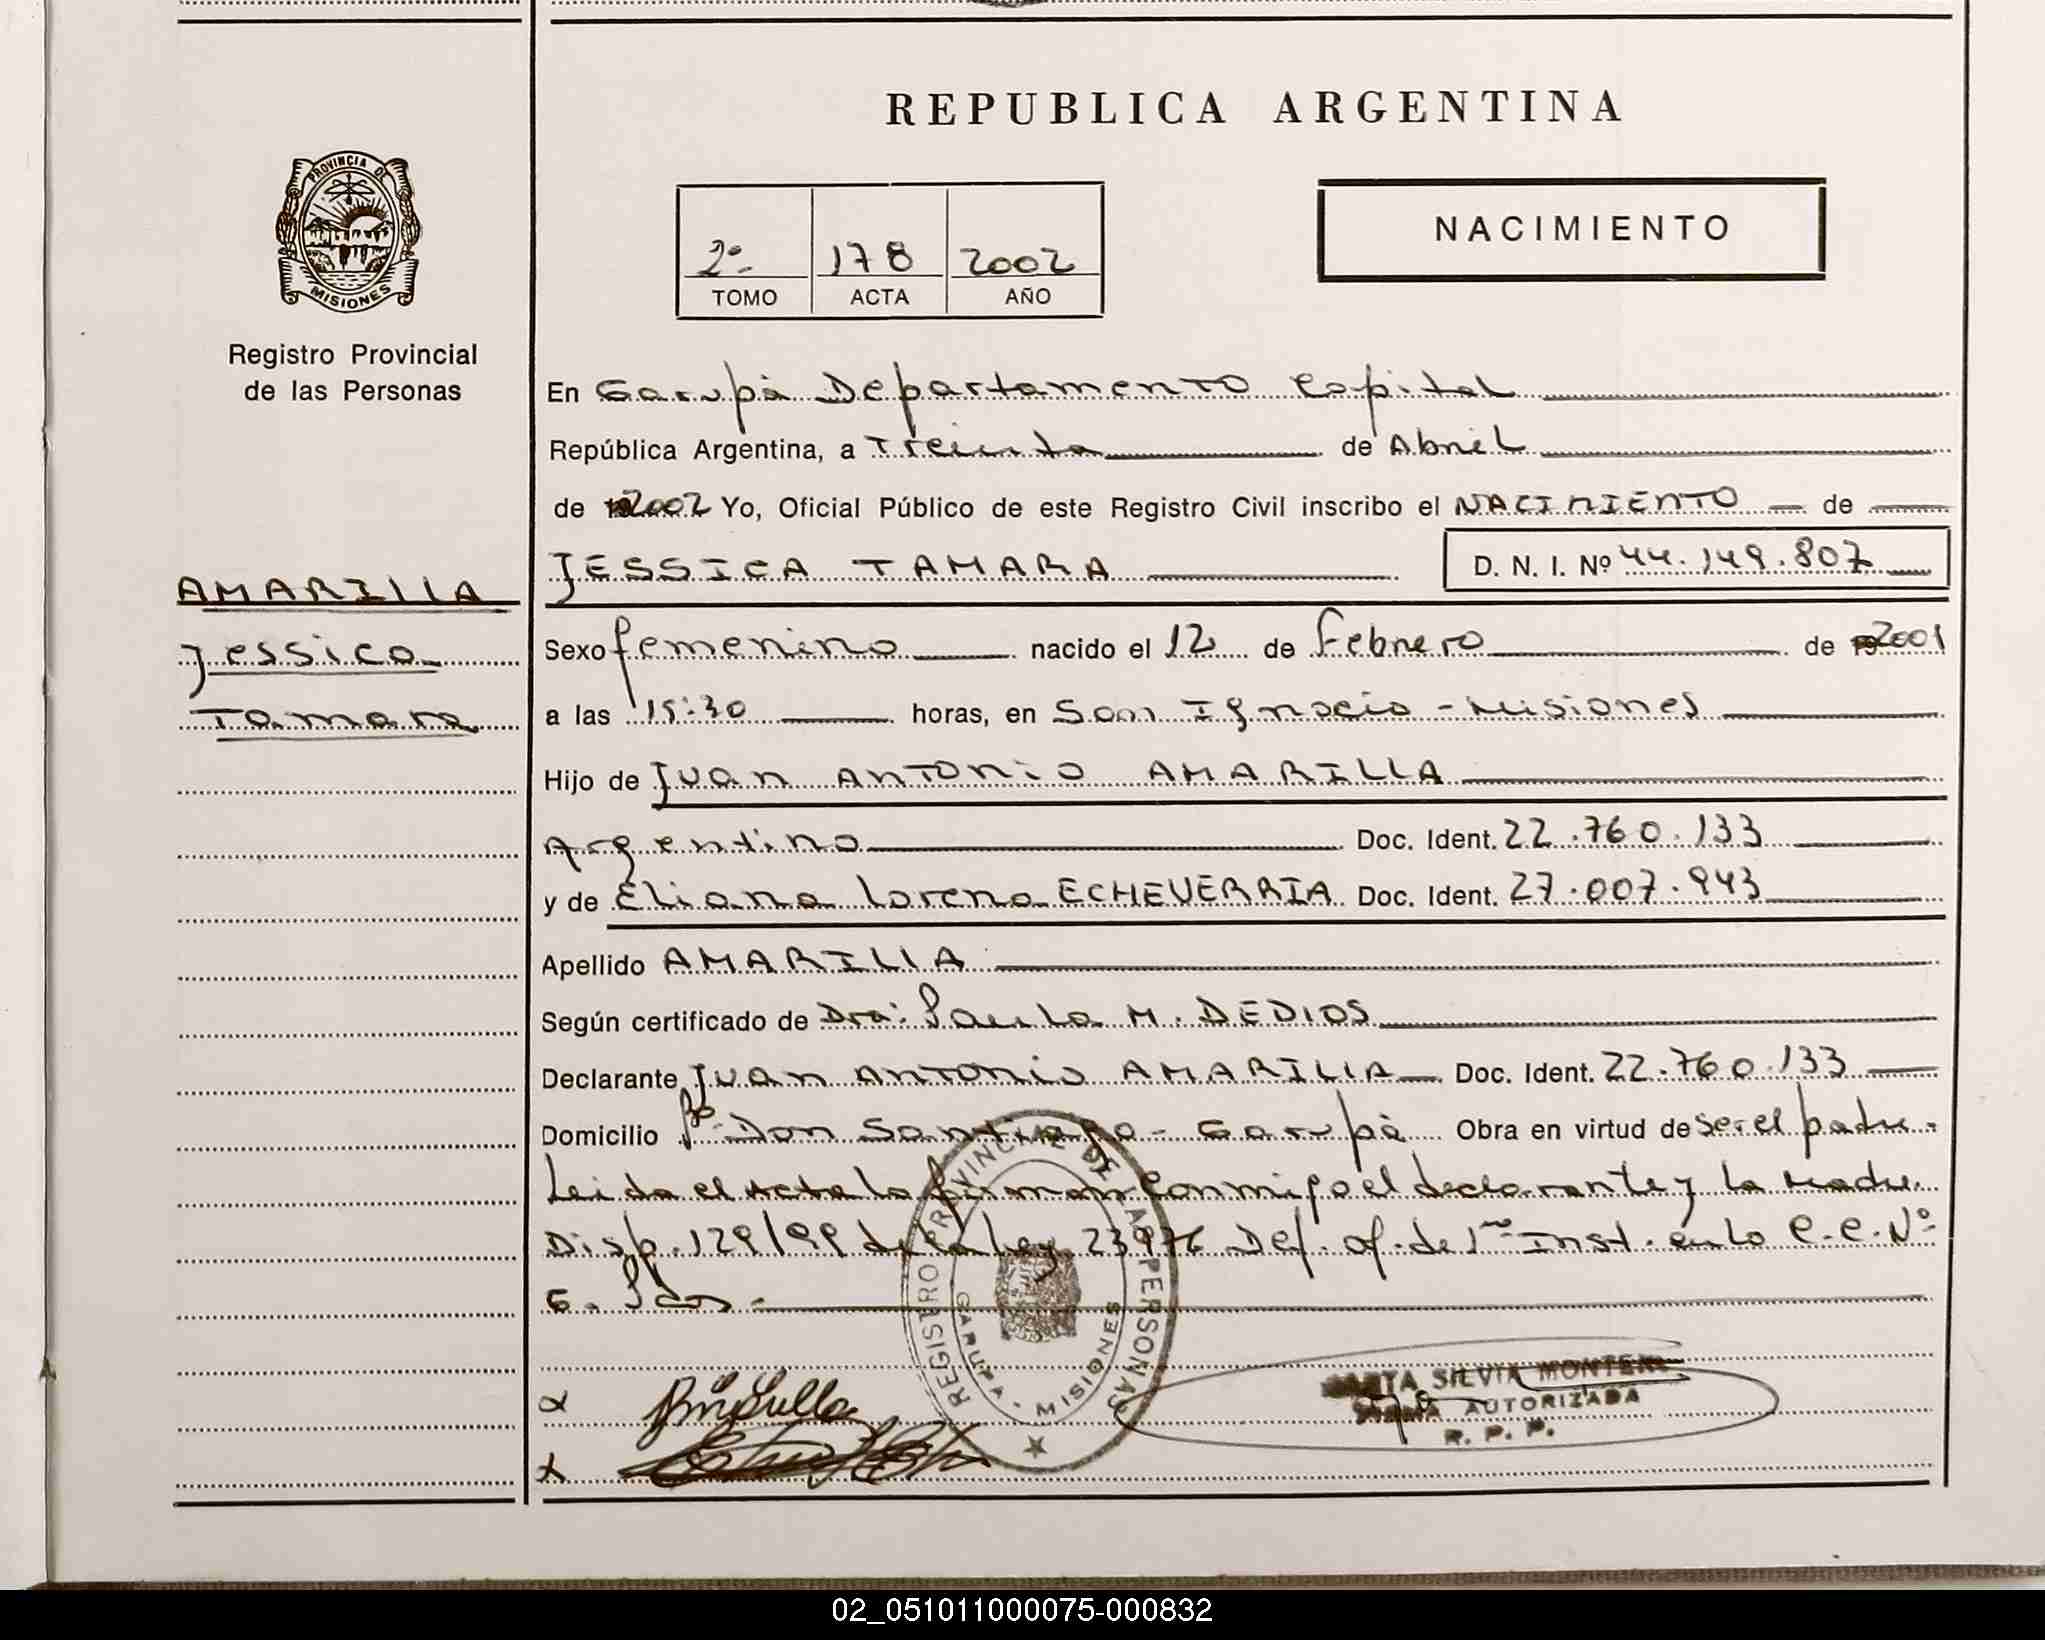 REPUBLICA ARGENTINA
PROVINCIA DE
MISIONES
Registro Provincial
de las Personas
2º- 178 2002
TOMO ACTA AÑO
NACIMIENTO
En Garupá Departamento Capital
República Argentina, a Treinta de Abril
de 2002 Yo, Oficial Público de este Registro Civil inscribo el NACIMIENTO de
JESSICA TAMARA D. N. I. Nº 44.149.807
AMARILLA
Jessica
Tamara
Sexo femenino nacido el 12 de Febrero de 2001
a las 15:30 horas, en San Ignacio - Misiones
Hijo de Juan Antonio AMARILLA
Argentino Doc. Ident. 22.760.133
y de Eliana Lorena ECHEVERRIA Doc. Ident. 27.007.943
Apellido AMARILLA
Según certificado de Dra: Paula M. DEDIOS
Declarante Juan Antonio AMARILLA Doc. Ident. 22.760.133
Domicilio Bº Don Santiago - Garupá Obra en virtud de ser el padre.
Leida el Acta la firman conmigo el declarante y la madre.
Disp. 129/99 de la ley 23976 Def. of. de 1ra Inst. en lo C.C. Nº
6. Pdas.-
REGISTRO PROVINCIAL DE LAS PERSONAS
GARUPA - MISIONES
SILVIA
AUTORIZADA
R. P. P.
02_051011000075-000832